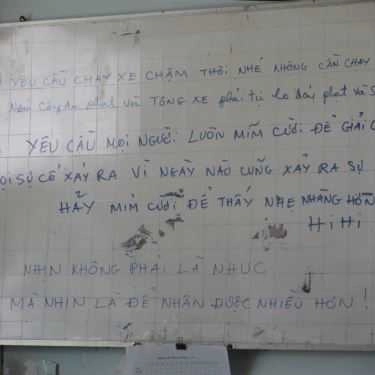 YÊU CẦU CHẠY XE CHẬM THÔI NHÉ KHÔNG CẦN CHẠY
CÔNG AN phạt và TÔNG XE phải tự lo đóng phạt và S
YÊU CẦU MỌI NGƯỜI LUÔN MĨM CƯỜI ĐỂ GIẢI Q
ỌI SỰ CỐ XẢY RA VÌ NGÀY NÀO CŨNG XẢY RA SỰ
HÃY MĨM CƯỜI ĐỂ THẤY NHẸ NHÀNG HƠN
HiHi
NHỊN KHÔNG PHẢI LÀ NHỤC
MÀ NHỊN LÀ ĐỂ NHẬN ĐƯỢC NHIỀU HƠN !